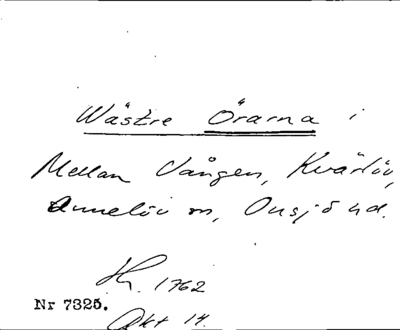 Wästre Örarna i
Mellan Vången, Kvärlöv,
Annelöv sn, Onsjö hd.
H. 1762
Nr 7325.
Akt 14.